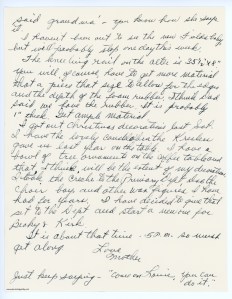 said grandma's - you know how she says
it.
I haven't been out to see the new Fields baby
but will probably stop one day this week.
The kneeling rail on the alter is 35½" x 48"
you will of course have to get more material
than a piece that size to allow for the sides
and the depth of the foam rubber. I think Dad
said we have the rubber. It is probably
1" thick. Get ample material.
I got out Christmas decorations last
I have the lovely candles in the
Gave us last year on the table. I have a
bowl of tree ornaments on the coffee table and
that I think will be the extent of my decorations
I took the Creche to the Primary Dept. Has the
Choir boy and other wax figures I have
had for years. I have decided to give that
set to the Dept and start a new one for
Becky & Kirk.
It is about that time - 5 P.M. so must
get along.
Love
Mother
Just keep saying - "come on Louise, you can
do it."